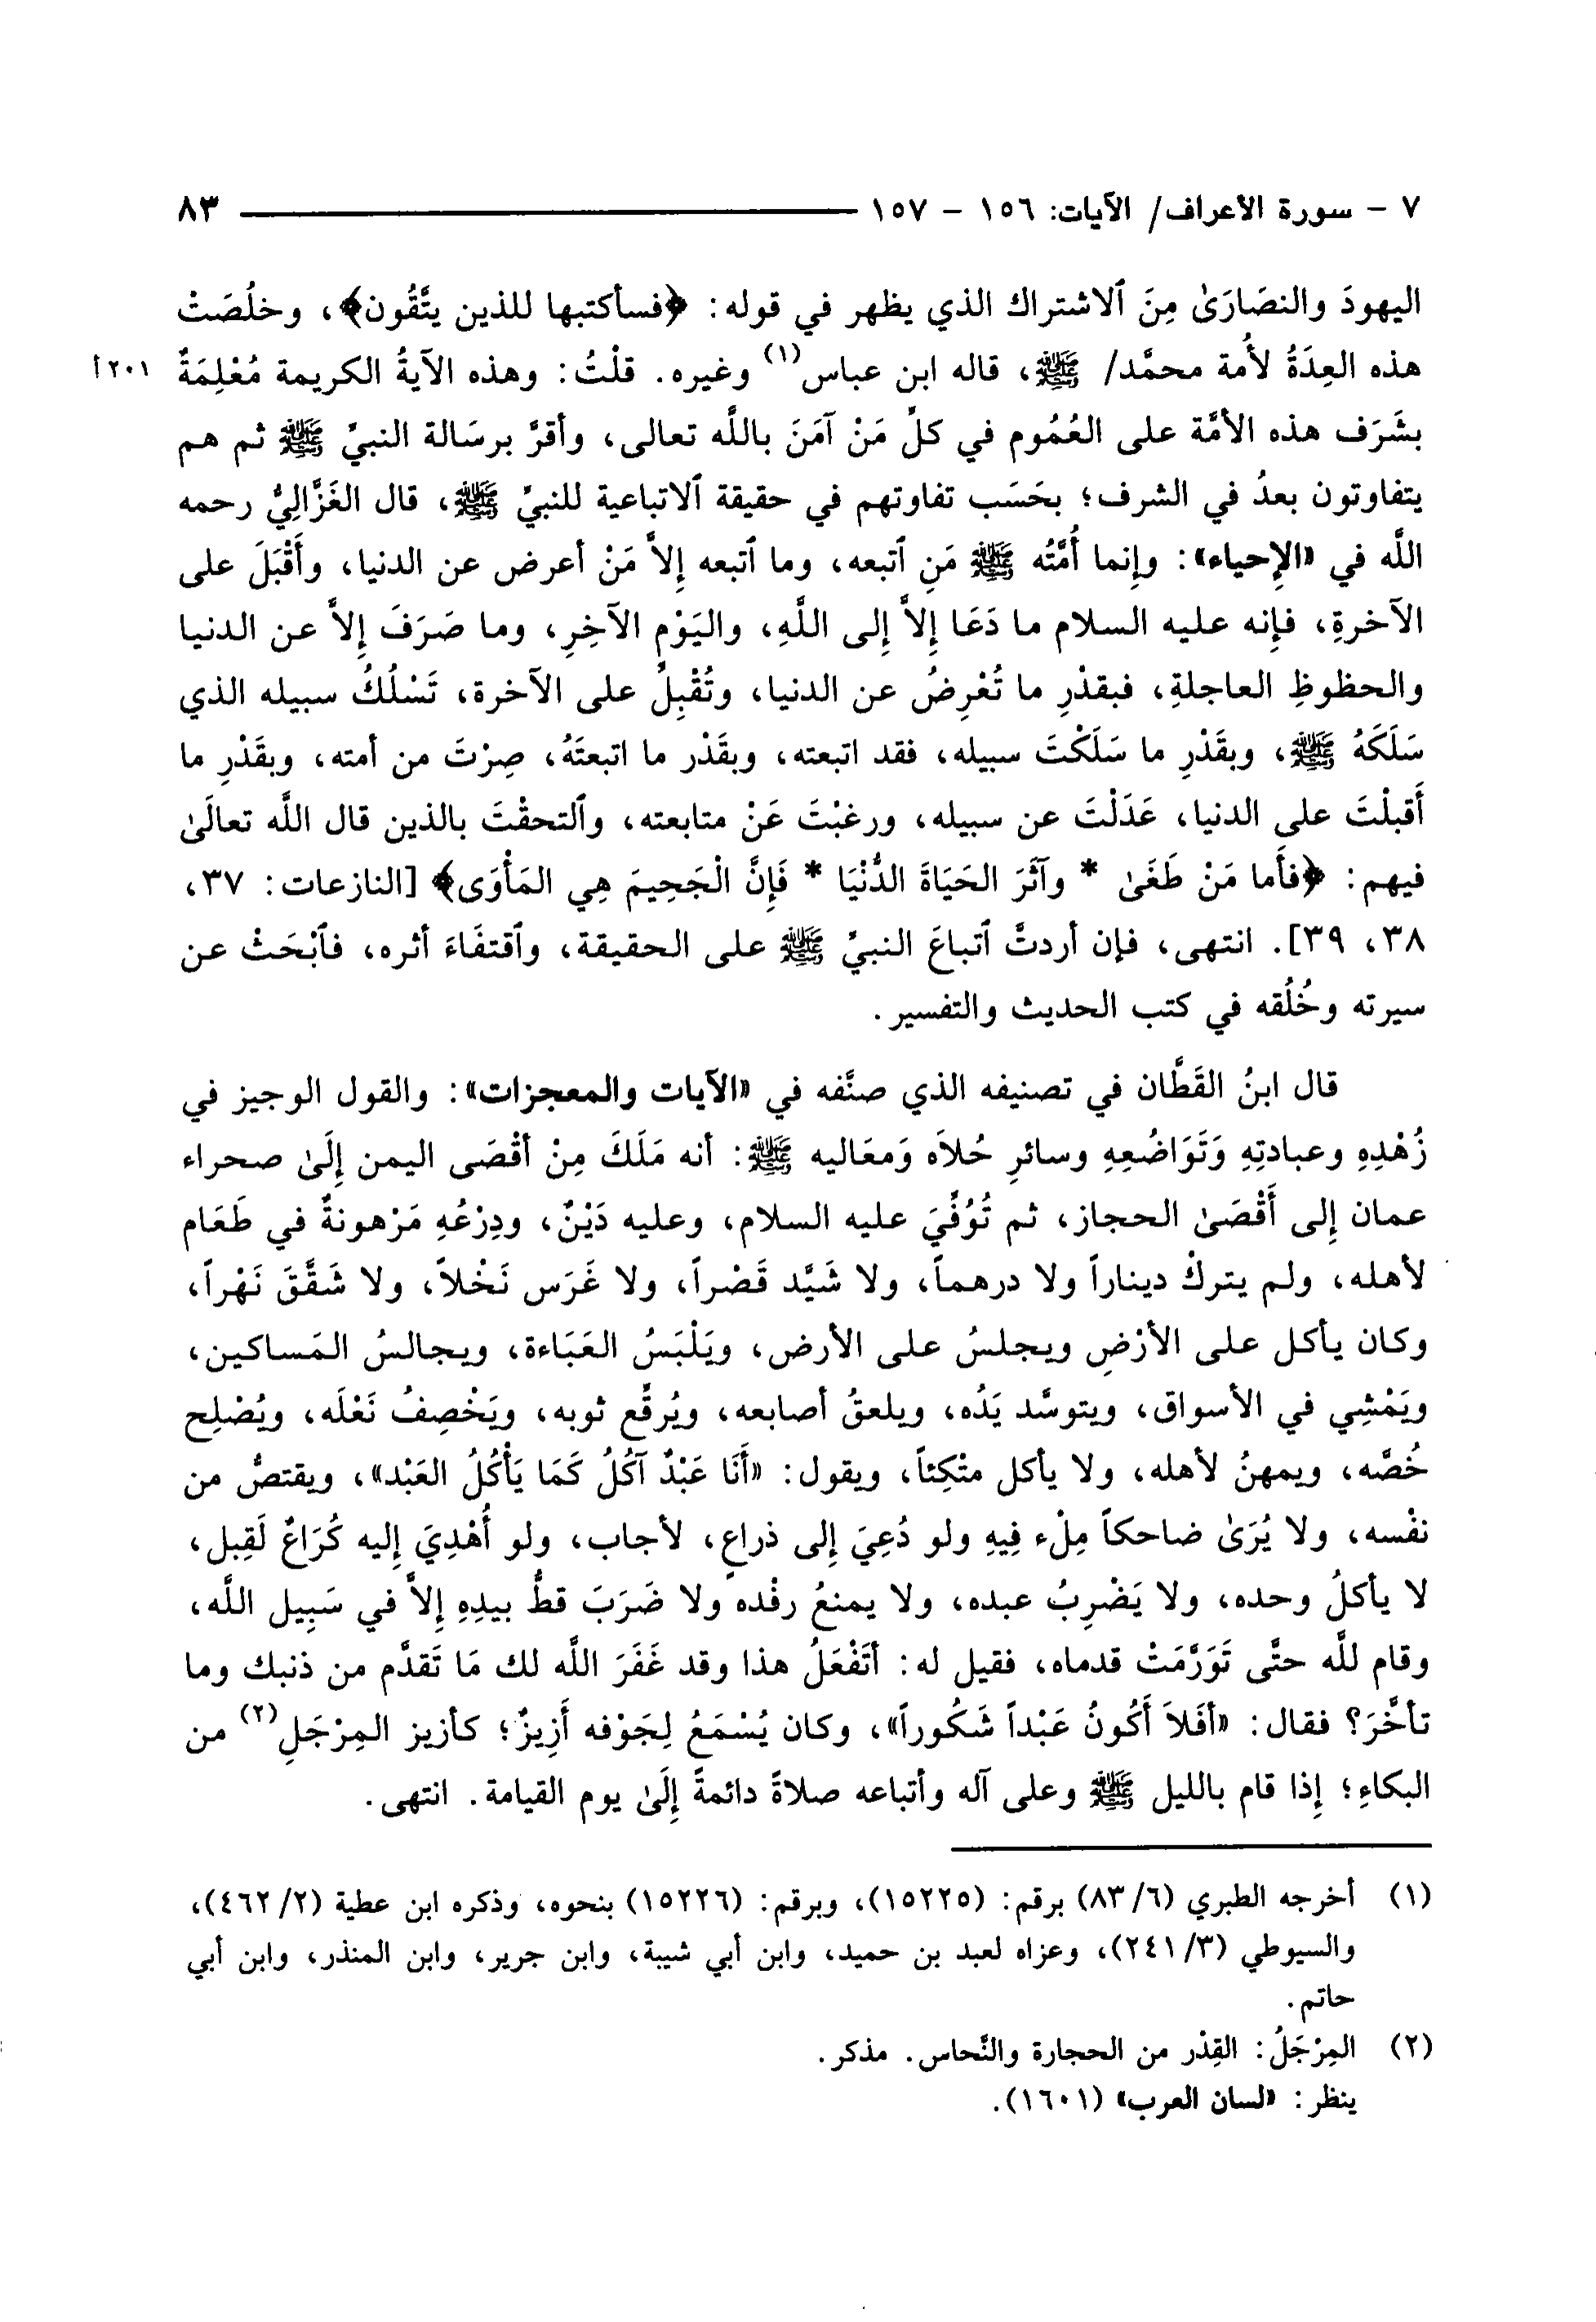 ٧ - سورة الأعراف/ الآيات: ١٥٦ - ١٥٧ ٨٣
اليهودَ والنصَارَىٰ مِنَ ٱلاشتراك الذي يظهر في قوله: ﴿فسأكتبها للذين يتَّقُون﴾، وخلُصَتْ
هذه العِدَةُ لأُمة محمَّد/ ﷺ، قاله ابن عباس(١) وغيره. قلْتُ: وهذه الآيةُ الكريمة مُعْلِمَةٌ ٢٠١ أ
بشَرَف هذه الأمَّة على العُمُوم في كلِّ مَنْ آمَنَ باللَّه تعالى، وأقرَّ برسَالة النبيِّ ﷺ ثم هم
يتفاوتون بعدُ في الشرف؛ بحَسَب تفاوتهم في حقيقة ٱلاتباعية للنبيِّ ﷺ، قال الغَزَّالِيُّ رحمه
اللَّه في «الإِحياء»: وإِنما أُمَّتُه ﷺ مَنِ ٱتبعه، وما ٱتبعه إِلاَّ مَنْ أعرض عن الدنيا، وأَقْبَلَ على
الآخرةِ، فإِنه عليه السلام ما دَعَا إِلاَّ إِلى اللَّهِ، واليَوْمِ الآخِرِ، وما صَرَفَ إِلاَّ عن الدنيا
والحظوظِ العاجلةِ، فبقدْرِ ما تُعْرِضُ عن الدنيا، وتُقْبِلُ على الآخرة، تَسْلُكُ سبيله الذي
سَلَكَهُ ﷺ، وبقَدْرِ ما سَلَكْتَ سبيله، فقد اتبعته، وبقَدْر ما اتبعتَهُ، صِرْتَ من أمته، وبقَدْرِ ما
أَقبلْتَ على الدنيا، عَدَلْتَ عن سبيله، ورغبْتَ عَنْ متابعته، وٱلتحقْتَ بالذين قال اللَّه تعالَىٰ
فيهم: ﴿فأَما مَنْ طَغَىٰ * وآثَرَ الحَيَاةَ الدُّنْيَا * فَإِنَّ الْجَحِيمَ هِي المَأْوَى﴾ [النازعات: ٣٧،
٣٨، ٣٩]. انتهى، فإن أردتَّ ٱتباعَ النبيِّ ﷺ على الحقيقة، وٱقتفَاءَ أثره، فٱبْحَثْ عن
سيرته وخُلُقه في كتب الحديث والتفسير.
قال ابنُ القَطَّان في تصنيفه الذي صنَّفه في «الآيات والمعجزات»: والقول الوجيز في
زُهْدِهِ وعبادتِهِ وَتَوَاضُعِهِ وسائرِ حُلاَه وَمعَاليه ﷺ: أنه مَلَكَ مِنْ أقْصَى اليمن إِلَىٰ صحراء
عمان إِلى أَقْصَىٰ الحجاز، ثم تُوُفِّيَ عليه السلام، وعليه دَيْنٌ، ودِرْعُهِ مَرْهونةٌ في طَعَام
لأهله، ولم يتركْ ديناراً ولا درهماً، ولا شَيَّد قَصْراً، ولا غَرَس نَخْلاً، ولا شَقَّقَ نَهْراً،
وكان يأكل على الأرْضِ ويجلسُ على الأرض، ويَلْبَسُ العَبَاءة، ويجالسُ المَساكين،
ويَمْشِي في الأسواق، ويتوسَّد يَدُه، ويلعقُ أصابعه، ويُرقِّع ثوبه، ويَخْصِفُ نَعْلَه، ويُصْلِح
خُصَّه، ويمهنُ لأهله، ولا يأكل متْكِئاً، ويقول: «أَنَا عَبْدٌ آكُلُ كَمَا يَأْكُلُ العَبْد»، ويقتصُّ من
نفْسه، ولا يُرَىٰ ضاحكاً مِلْء فِيهِ ولو دُعِيَ إِلى ذراعٍ، لأجاب، ولو أُهْدِيَ إِليه كُرَاعٌ لَقِبل،
لا يأكلُ وحده، ولا يَضْرِبُ عبده، ولا يمنعُ رفْده ولا ضَرَبَ قطُّ بيدِهِ إِلاَّ في سَبِيل اللَّه،
وقام للَّه حتَّى تَوَرَّمَتْ قدماه، فقيل له: أتَفْعَلُ هذا وقد غَفَرَ اللَّه لك مَا تَقدَّم من ذنبك وما
تأخَّرَ؟ فقال: «أفَلاَ أَكُونُ عَبْداً شَكُوراً»، وكان يُسْمَعُ لِجَوْفه أَزِيزٌ؛ كأزيز المِرْجَلِ(٢) من
البكاءِ؛ إِذا قام بالليل ﷺ وعلى آله وأتباعه صلاةً دائمةً إِلَىٰ يوم القيامة. انتهى.
(١) أخرجه الطبري (٦/ ٨٣) برقم: (١٥٢٢٥)، وبرقم: (١٥٢٢٦) بنحوه، وذكره ابن عطية (٢/ ٤٦٢)،
والسيوطي (٣/ ٢٤١)، وعزاه لعبد بن حميد، وابن أبي شيبة، وابن جرير، وابن المنذر، وابن أبي
حاتم.
(٢) المِرْجَلُ: القِدْر من الحجارة والنَّحاس. مذكر.
ينظر: «لسان العرب» (١٦٠١).